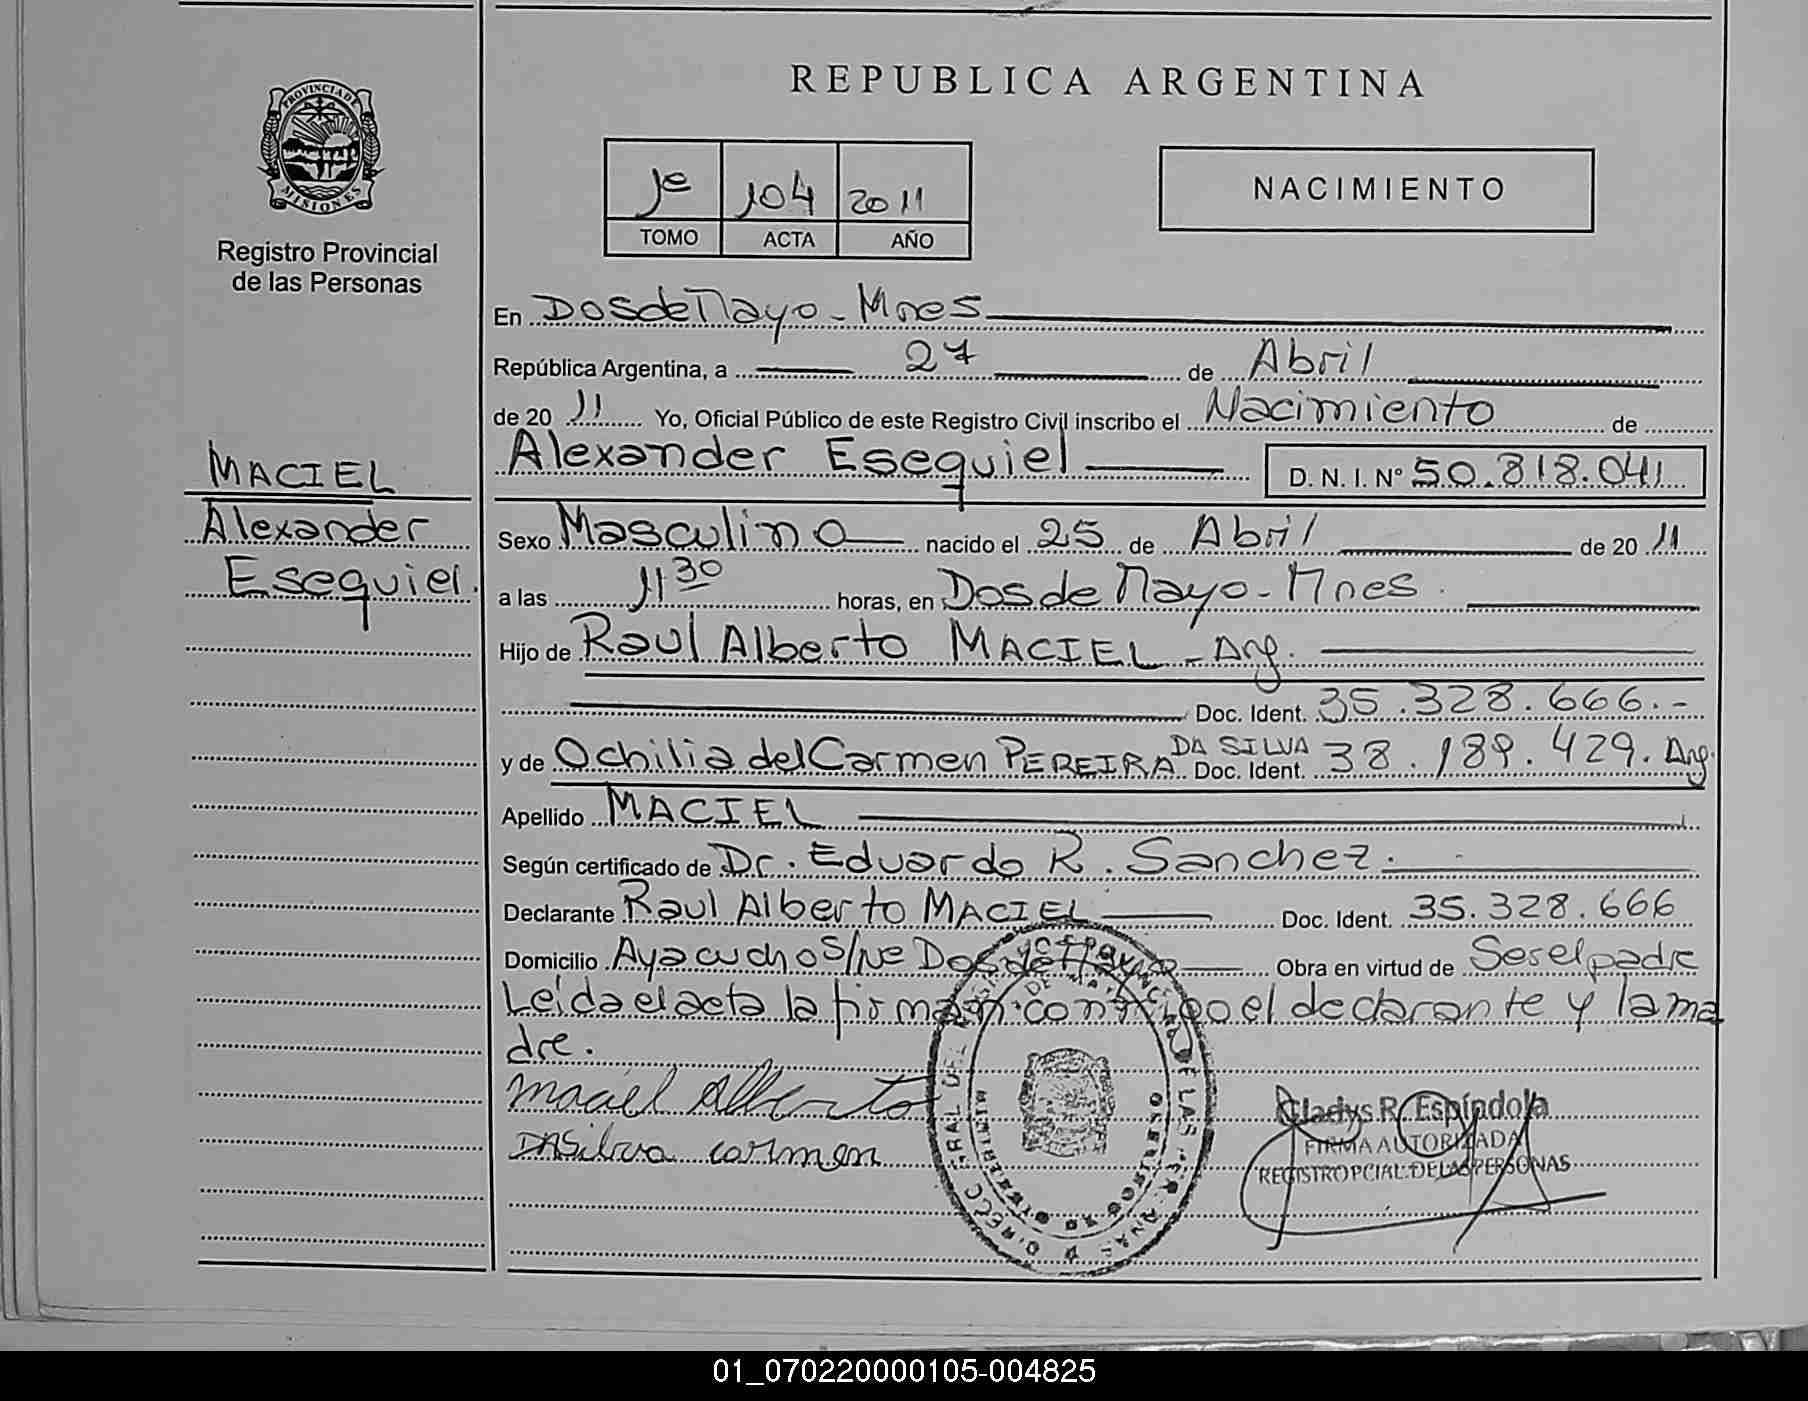 REPUBLICA ARGENTINA
PROVINCIA DE
MISIONES
Registro Provincial
de las Personas
1º 104 2011
TOMO ACTA AÑO
NACIMIENTO
En Dos de Mayo - Mnes
República Argentina, a 27 de Abril
de 20 11 Yo, Oficial Público de este Registro Civil inscribo el Nacimiento de
MACIEL
Alexander
Esequiel.
Alexander Esequiel D. N. I. Nº 50.818.041
Sexo Masculino nacido el 25 de Abril de 20 11
a las 11 30 horas, en Dos de Mayo - Mnes.
Hijo de Raul Alberto MACIEL - Arg.
Doc. Ident. 35.328.666.-
y de Ochilia del Carmen PEREIRA DA SILVA Doc. Ident. 38.189.429. Arg.
Apellido MACIEL
Según certificado de Dr. Eduardo R. Sanchez.
Declarante Raul Alberto MACIEL Doc. Ident. 35.328.666
Domicilio Ayacucho S/Nº Dos de Mayo Obra en virtud de Ser el padre
Leída el acta la firman conmigo el declarante y la ma
dre.
Maciel Alberto
DASilva carmen
Gladys R. Espíndola
FIRMA AUTORIZADA
REGISTRO PCIAL. DE LAS PERSONAS
01_070220000105-004825